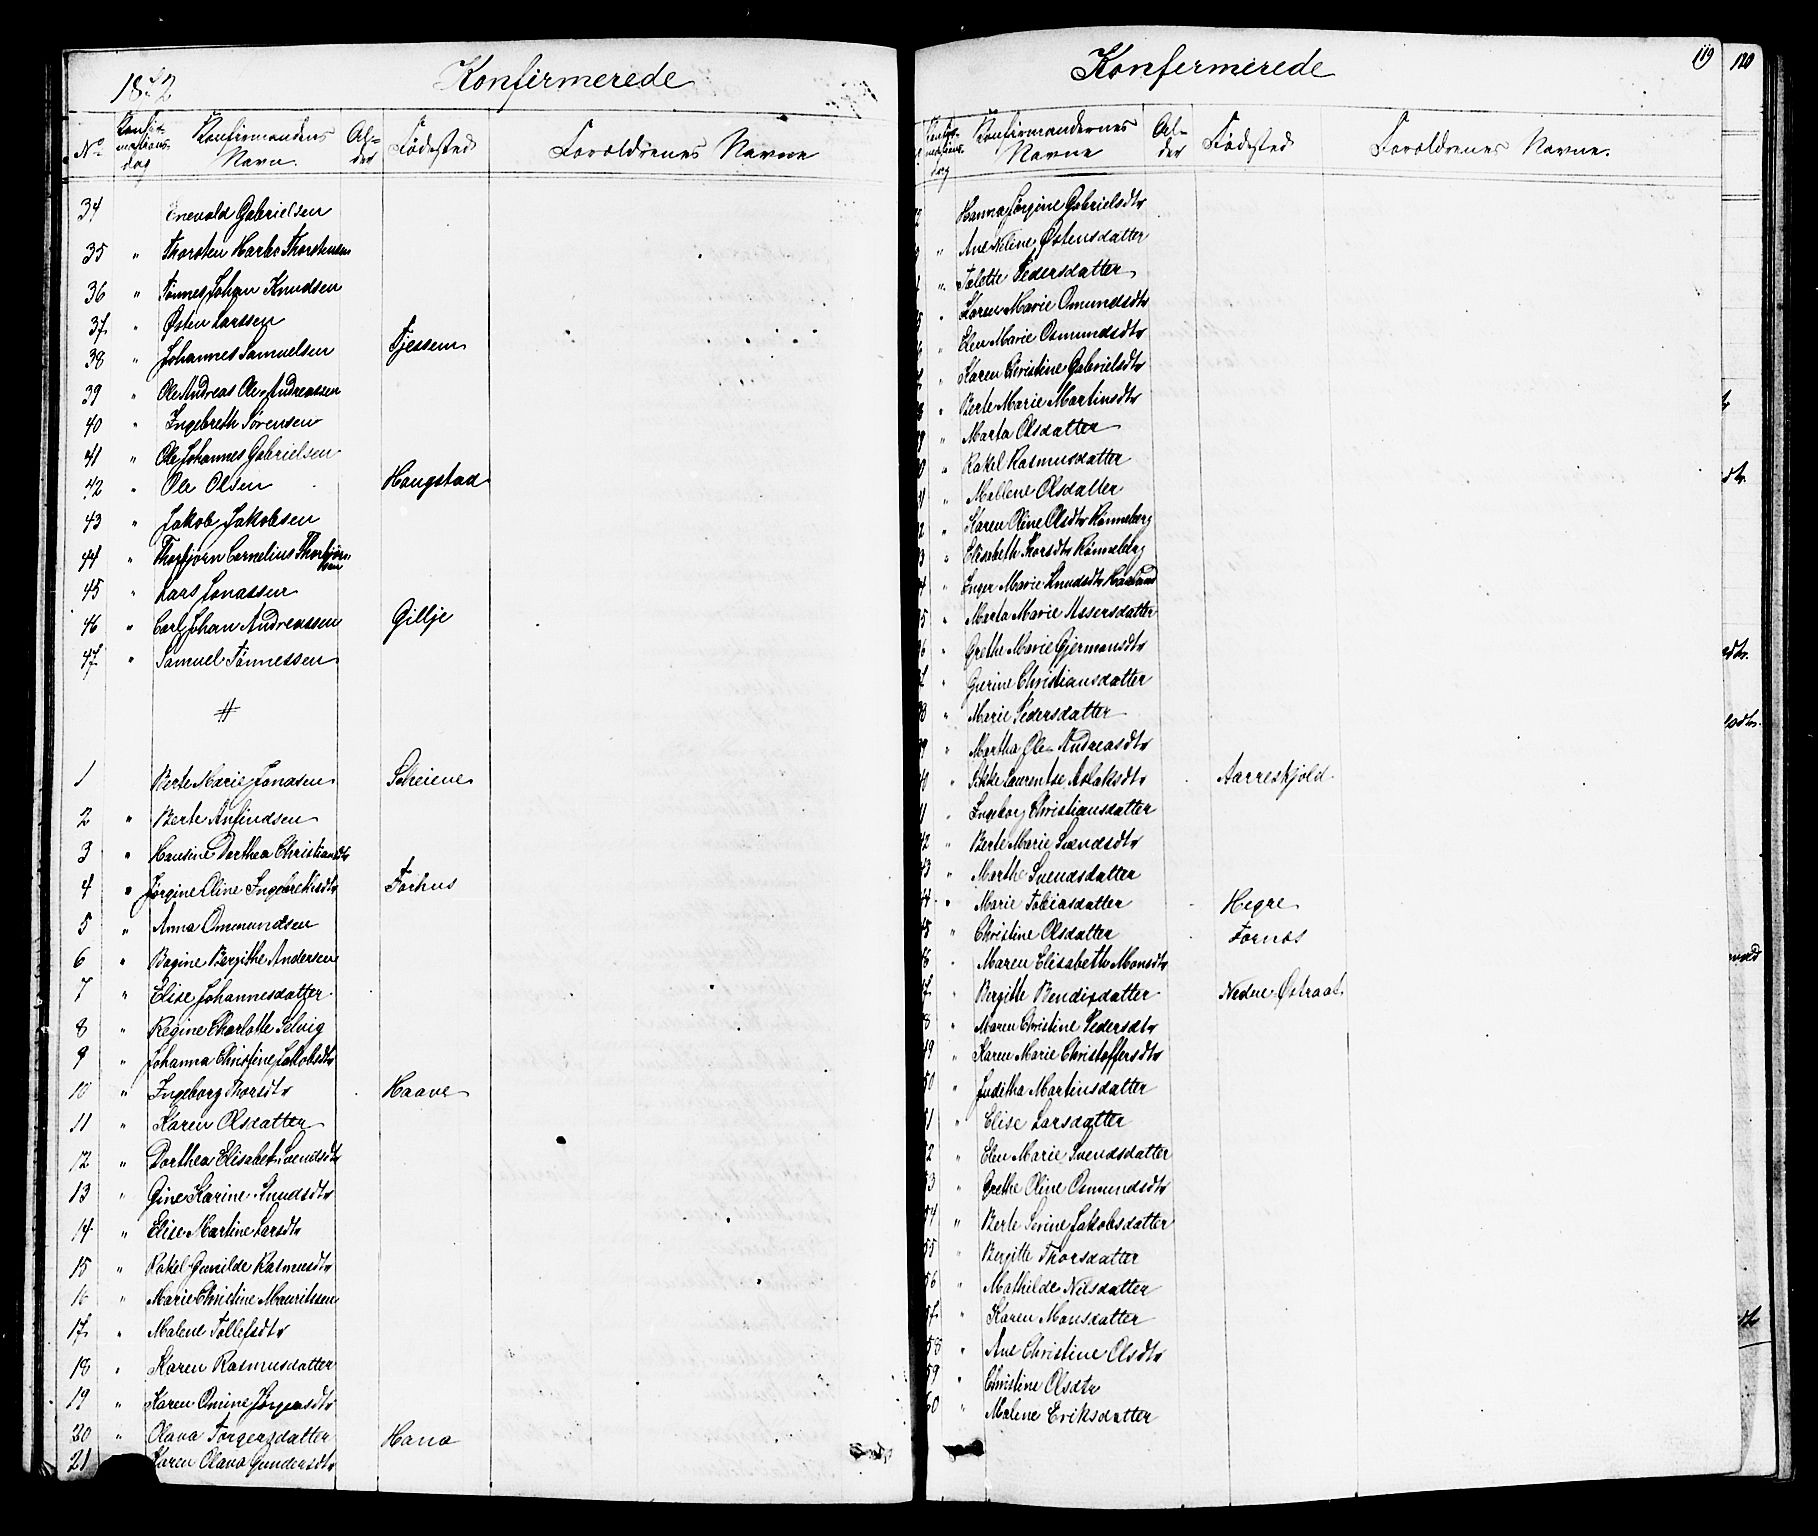 Konfirmerede
No. Konfirmations dag Konfirmandens Navn. Alder Fødested Forældrenes Navne
34 Enevald Gabrielsen
35 " Thorsten Thorstensen
36 " Tønnes Johan Knudsen
37 " Østen Larssen
38 " Johannes Samuelsen Tjessem
39 " Ole Andreas Ole Andreassen
40 " Ingebreth Sørensen
41 " Ole Johannes Gabrielsen
42 " Ole Olsen Haugstad
43 " Jakob Jakobsen
44 " Thorbjørn Cornelius Thorbjørnsen
45 " Lars Jonassen
46 " Carl Johan Andreassen Gillje
47 " Samuel Tønnessen
#
1 Berte Marie Jonasen Scheiene
2 " Berte Anfindsen
3 " Hansine Dorthea Christiansdtr
4 " Jørgine Oline Ingebretsdtr Forhus
5 " Anna Ommundsen
6 " Bagine Bergithe Andersen
7 " Elise Johannesdatter
8 " Regine Charlotte Selvig
9 " Johanna Christine Jakobsdtr
10 " Ingeborg Thorsdtr Haave
11 " Karen Olsdatter
12 " Dorthea Elisabet Svendsdtr
13 " Gine Karine Knudsdtr
14 " Elise Martine Larsdtr
15 " Rakel Gunilde Rasmusdtr
16 " Marie Christine Mauritssen
17 " Malene Tollefsdtr
18 " Karen Rasmusdatter
19 " Karen Omine Jørgensdtr
20 " Olava Torgersdatter Hana
21 Karen Olava Gundersdtr
Konfermerede 119 120
Konfirmations dag Konfirmandernes Navne Alder Fødested Forældrenes Navne.
Hanna Jørgine Gabrielsdtr
" Ane Østensdatter
" Talette Pedersdatter
" Karen Marie Osmundsdtr
" Elen Marie Osmundsdtr
" Karen Christine Gabrielsdtr
" Berte Marie Martinsdtr
" Marta Olsdatter
" Rakel Rasmusdatter
" Mallene Olsdatter
" Karen Oline Olsdtr Rønneberg
" Elisabeth Thorsdtr Rønneberg
" Inger Marie Knudsdtr
" Marta Marie Assersdatter
" Grethe Marie Gjermansdtr
" Gierine Christiansdatter
" Marie Pedersdatter
" Martha Ole Andreasdtr
" Laurentse Aslaksdtr Aarreskjold
" Ingeborg Christiansdatter
42 " Berte Marie Svendsdtr
43 " Marthe Svendsdatter
44 " Marie Tobiasdatter Hegre
45 " Christine Olsdatter Fornes
" Maren Elisabeth Monsdtr
" Bergitte Bendixdatter Nedre Østraat
" Maren Christine Pedersdtr
49 " Karen Marie Christoffersdtr
50 " Juditha Martinsdatter
51 " Elise Larsdatter
52 " Elen Marie Svendsdatter
53 " Grethe Oline Osmundsdtr
54 " Berte Serine Jakobsdatter
55 " Bergitte Thorsdatter
56 " Mathilde Nilsdatter
57 " Karen Monsdatter
58 " Ane Christine Olsdtr
59 " Christine Olsdtr
60 " Malene Eriksdatter